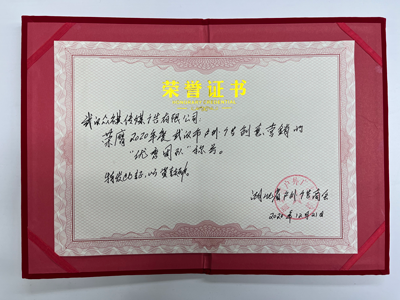 荣誉证书
武汉众媒传媒广告有限公司:
荣膺2020年度武汉市户外广告创意营销的
“优秀团队”称号。
特发此证,以资鼓励。
湖北省户外广告商会